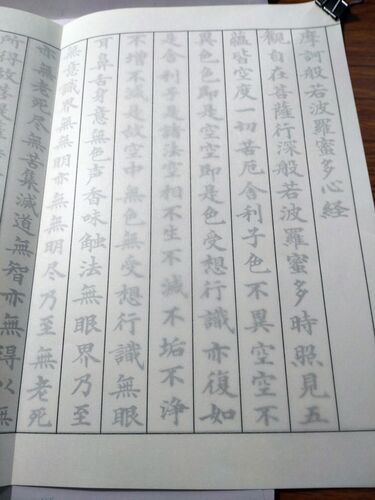 摩訶般若波羅蜜多心経
観自在菩薩行深般若波羅蜜多時照見五
蘊皆空度一切苦厄舎利子色不異空空不
異色色即是空空即是色受想行識亦復如
是舎利子是諸法空相不生不滅不垢不浄
不増不減是故空中無色無受想行識無眼
耳鼻舌身意無色声香味触法無眼界乃至
無意識界無無明亦無無明尽乃至無老死
亦無老死尽無苦集滅道無智亦無得以無
所得故菩提